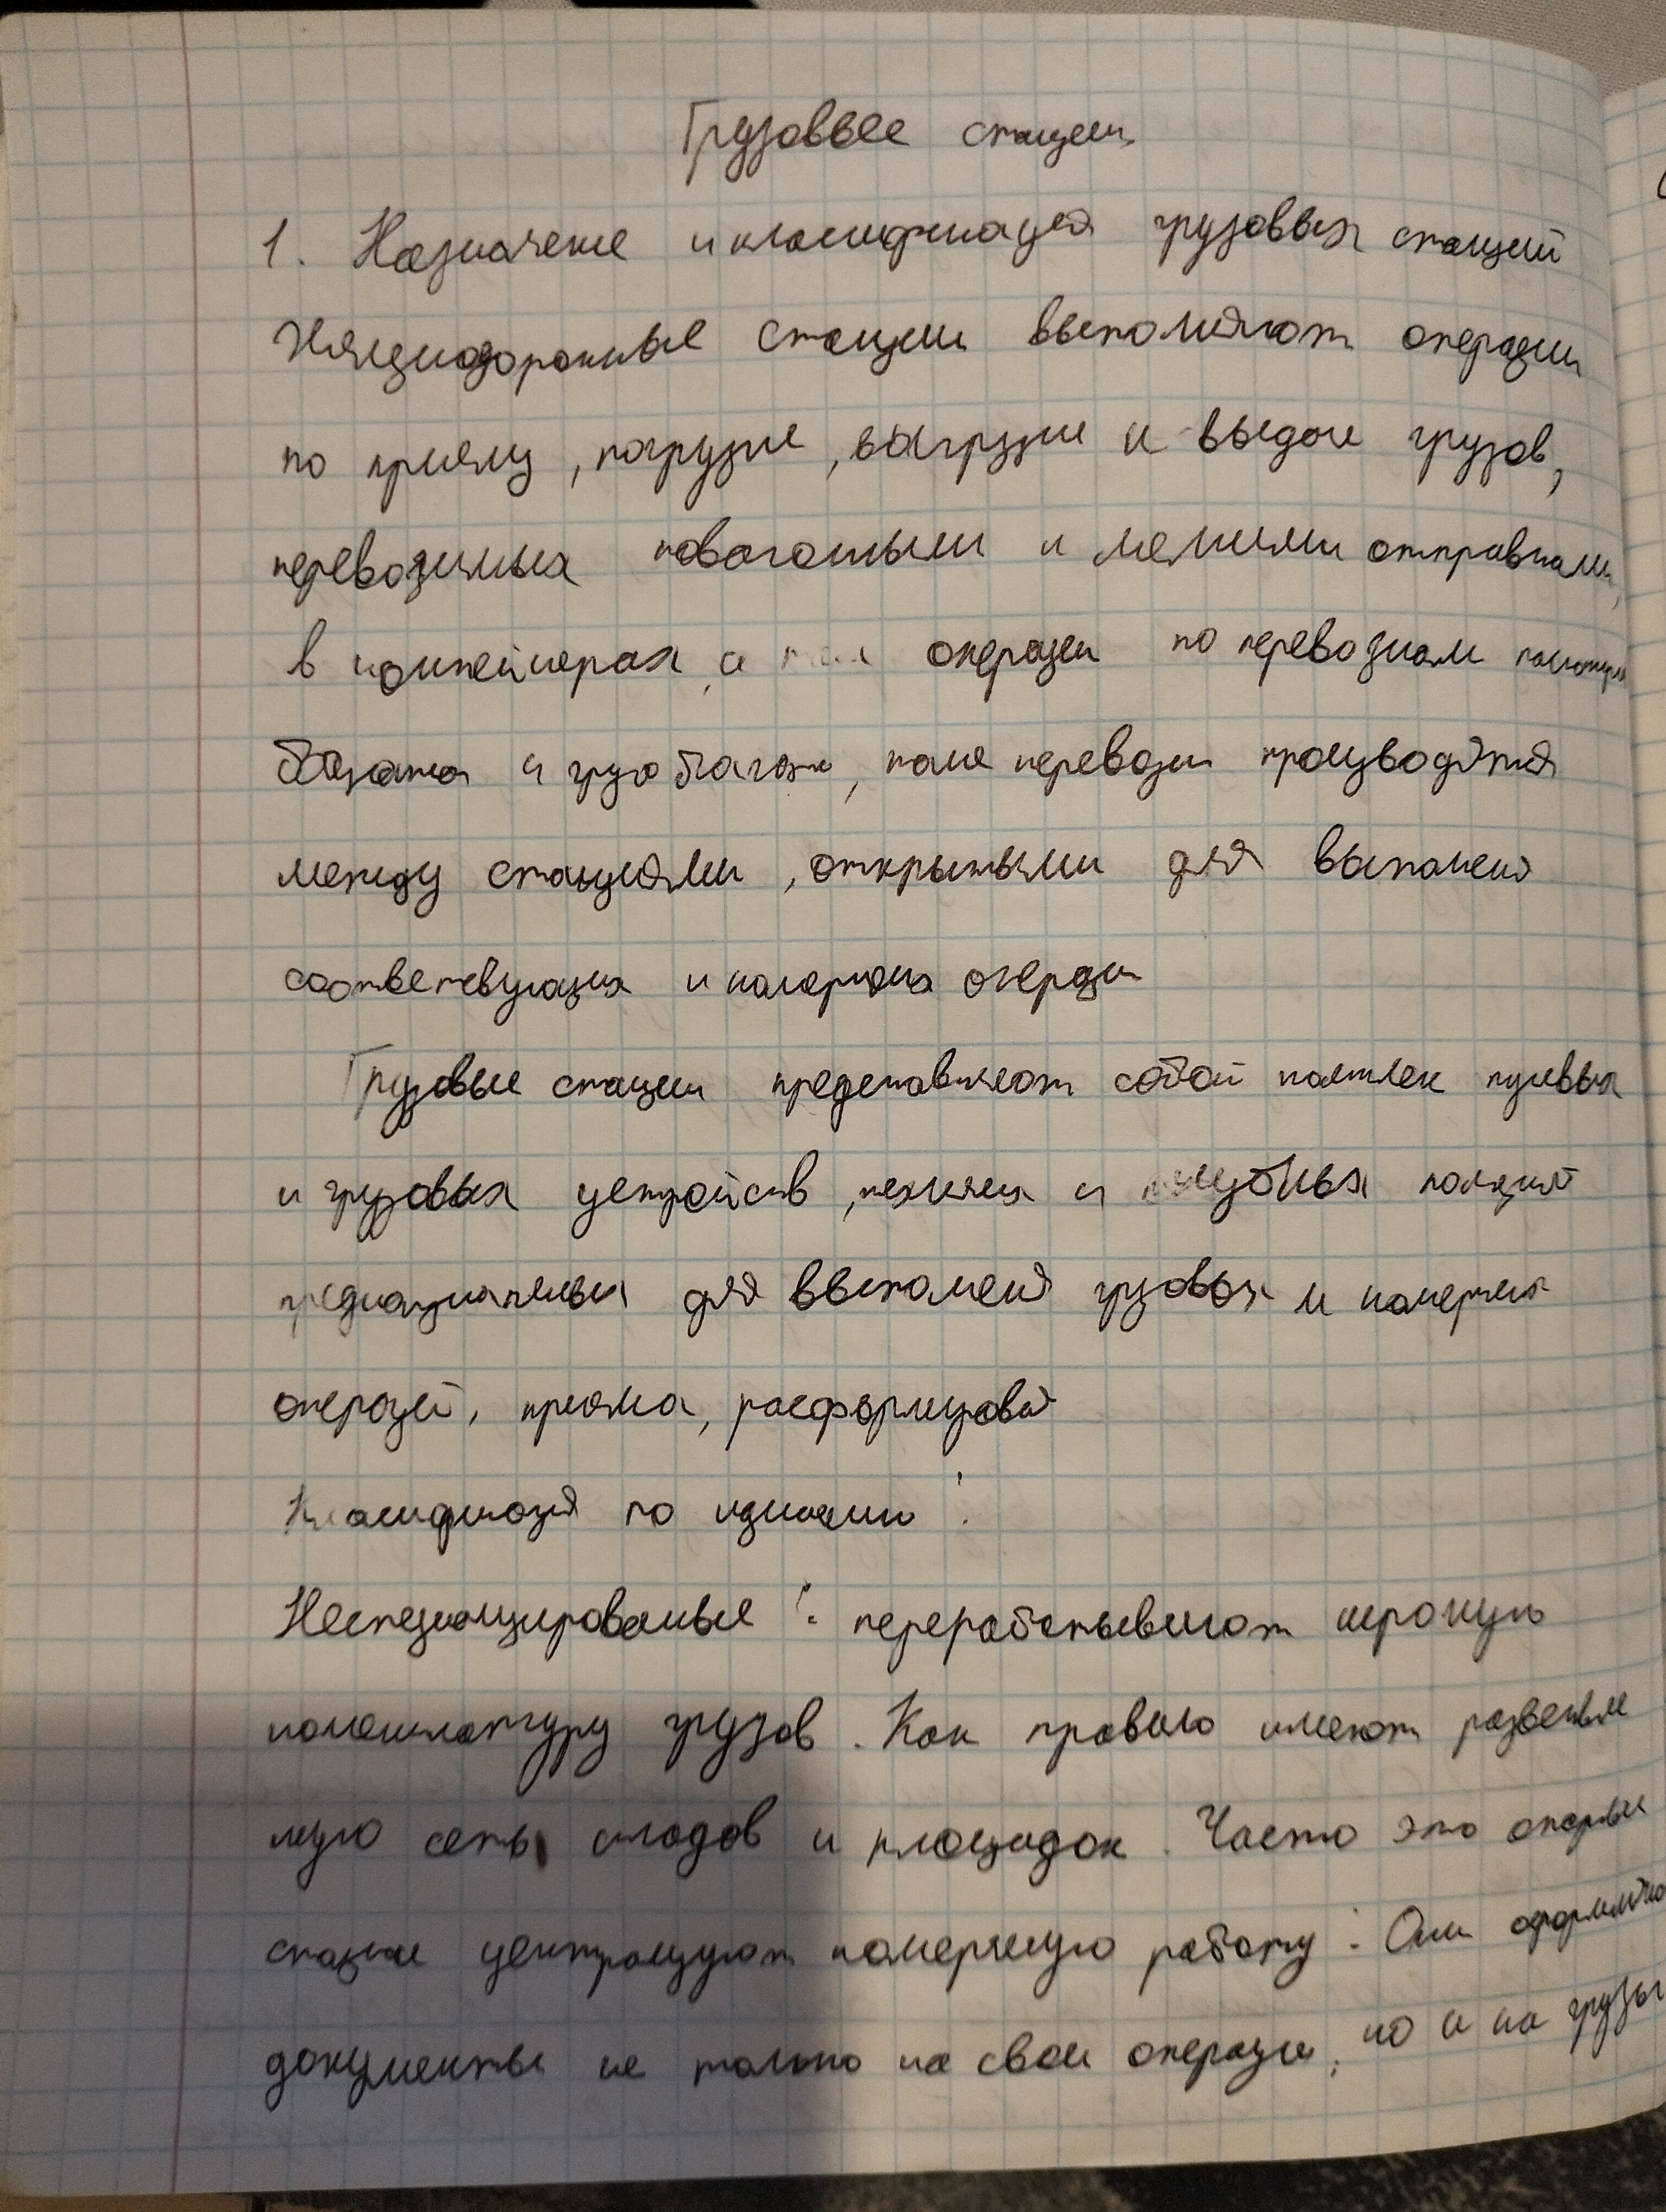 Грузовые станции
1. Назначение и классификация грузовых станций
Железнодорожные станции выполняют операции
по приему, погрузке, выгрузке и выдаче грузов,
перевозимых повагонными и мелкими отправками,
в контейнерах, а операции по перевозкам
багажа и грузобагажа, перевозки производятся
между станциями, открытыми для выполнения
соответствующих и коммерческих операции
Грузовые станции представляют собой комплекс путевых
и грузовых устройств, технических и служебных
предназначенных для выполнения грузовых и коммерческих
операций, приема, расформирований
Классификация по
Неспециализированные: перерабатывают широкую
номенклатуру грузов. Как правило имеют
сеть складов и площадок. Часто это опорные
станции централизуют коммерческую работу: Они оформляют
документы не только на свои операции, но и на грузы